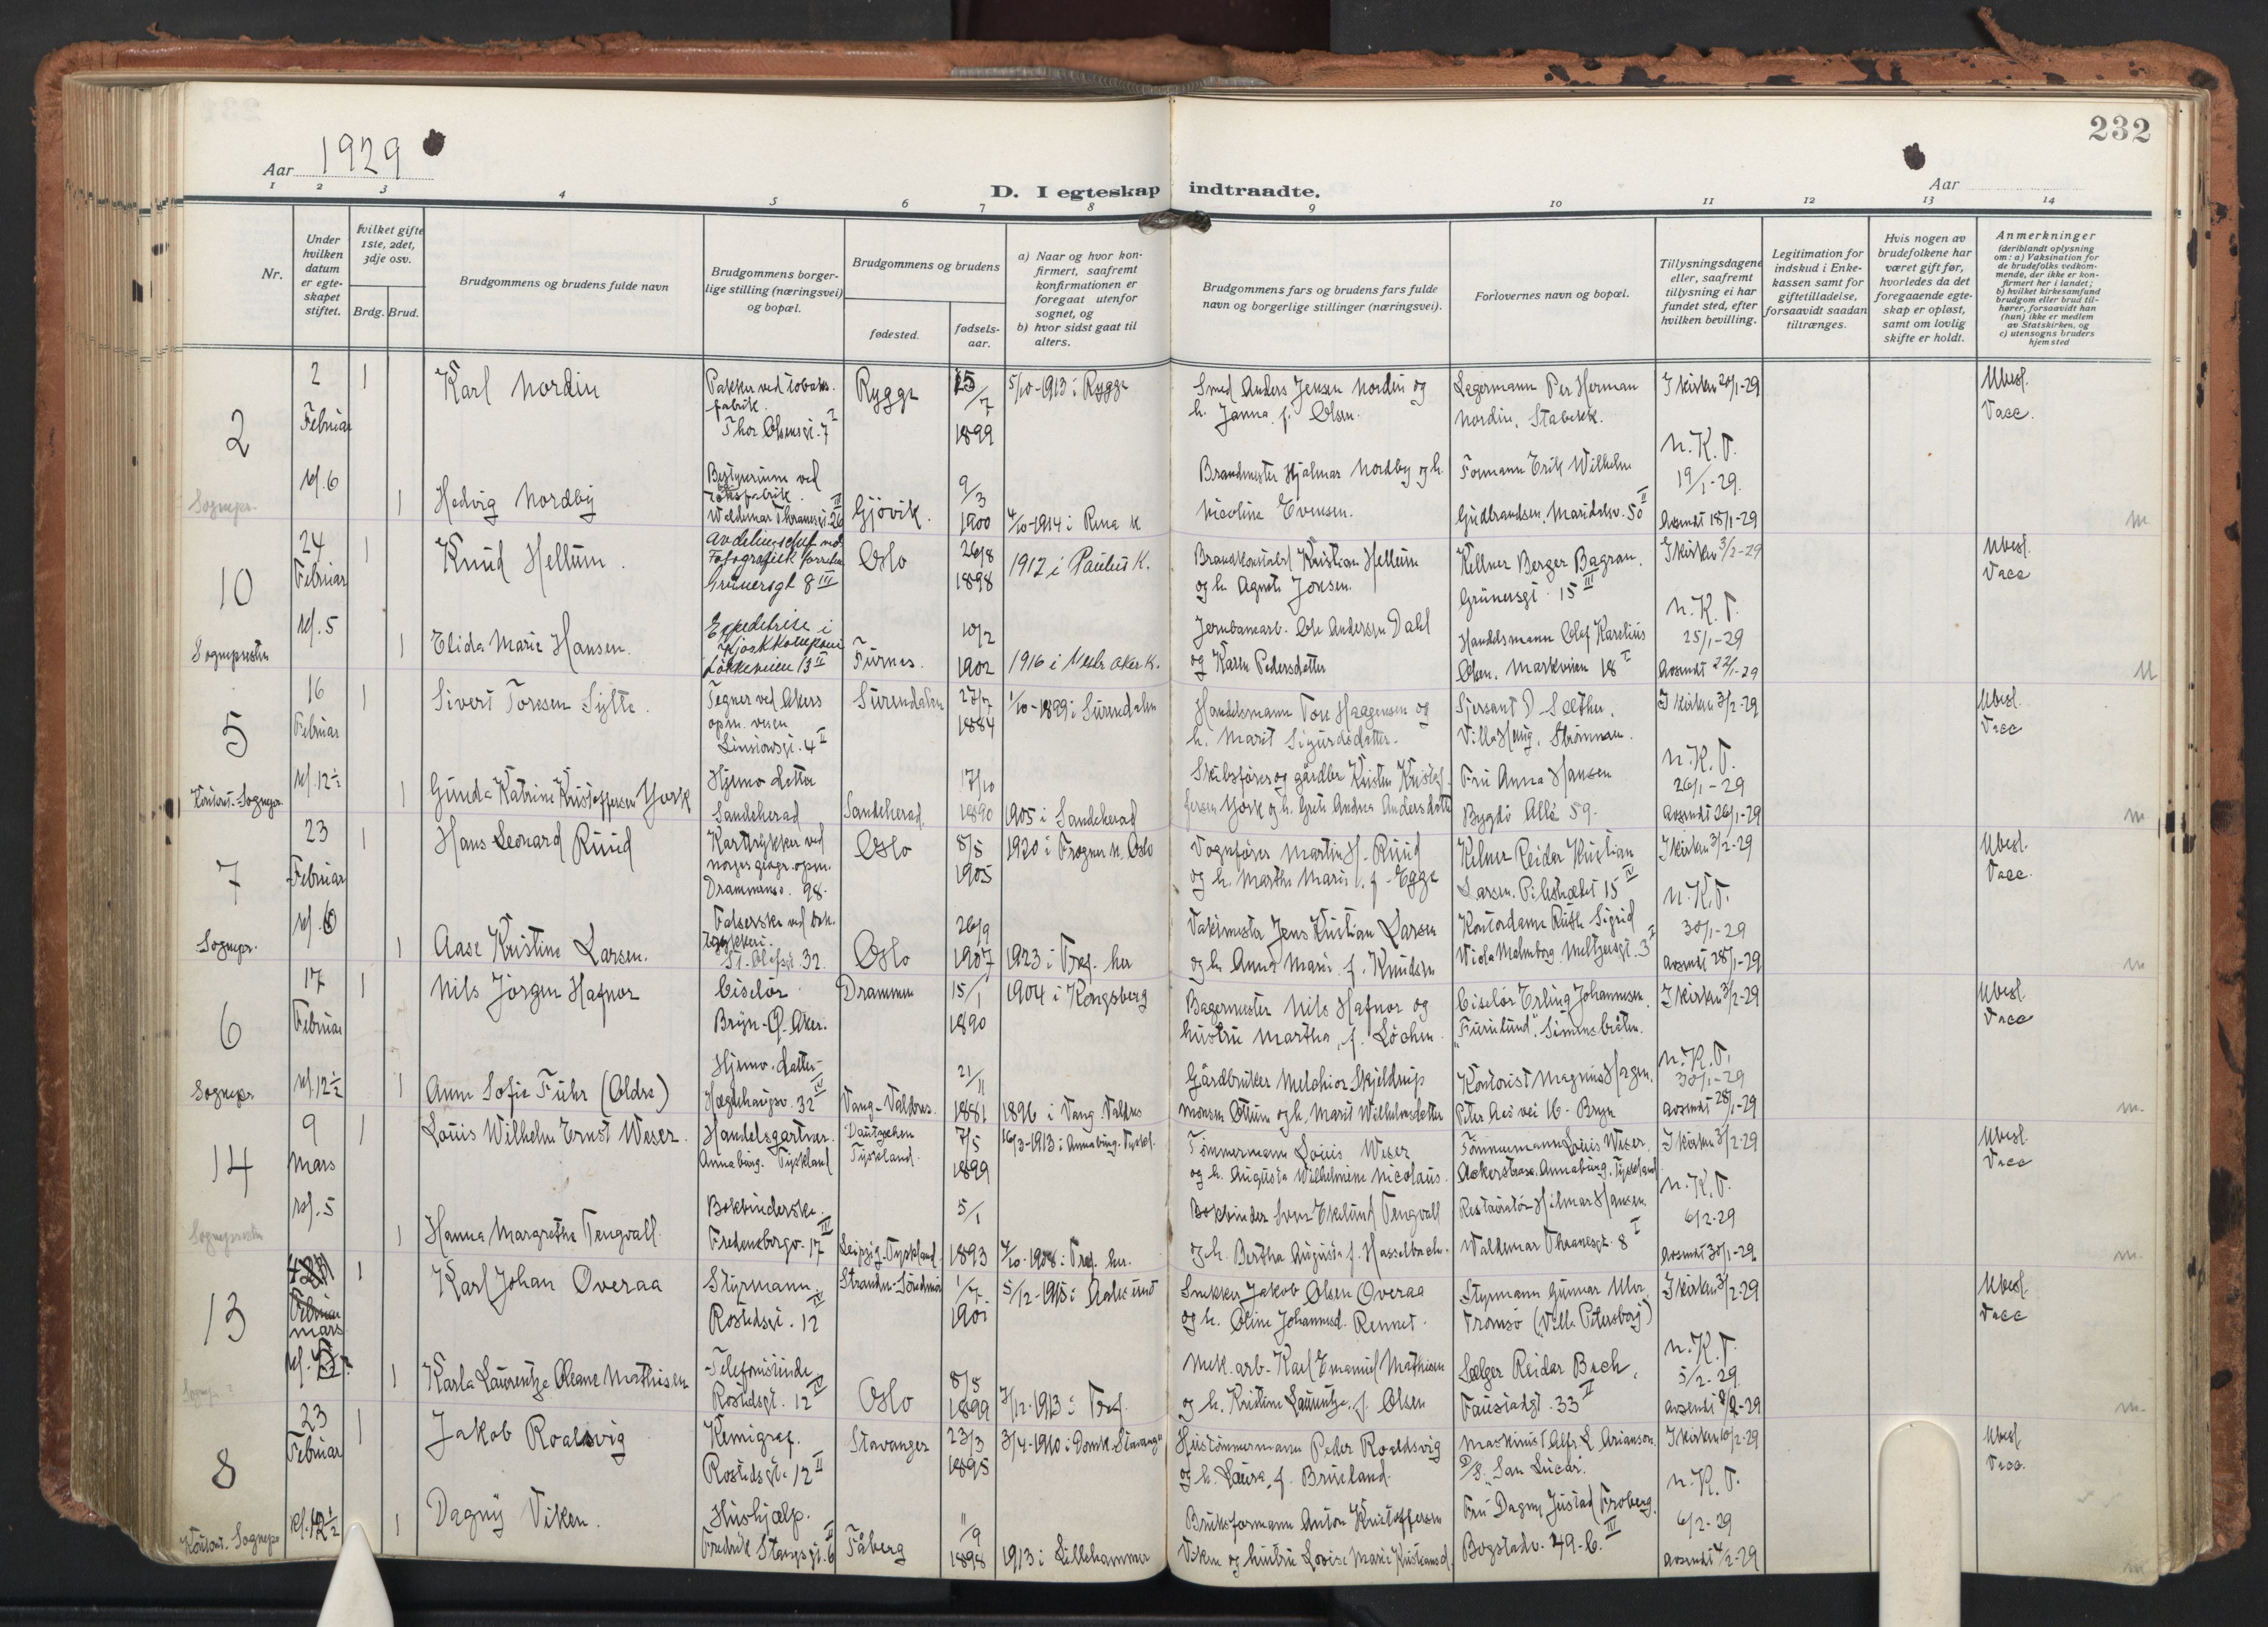 232
Aar 1929
Aar
D. I egteskap indtraadte.
1 2 3 4 5 6 7 8 9 10 11 12 13 14
Nr.
Under hvilken datum er egteskapet stiftet.
hvilket gifte 1ste, 2det, 3dje osv.
Brdg. Brud.
Brudgommens og brudens fulde navn
Brudgommens borgerlige stilling (næringsvei) og bopæl.
Brudgommens og brudens
fødested.
fødselsaar.
a) Naar og hvor konfirmert, saafremt konfirmationen er foregaat utenfor sognet, og
b) hvor sidst gaat til alters.
Brudgommens fars og brudens fars fulde navn og borgerlige stillinger (næringsvei).
Forlovernes navn og bopæl.
Tillysningsdagene eller, saafremt tillysning ei har fundet sted, efter hvilken bevilling.
Legitimation for indskud i Enkekassen samt for giftetilladelse, forsaavidt saadan tiltrænges.
Hvis nogen av brudefolkene har været gift før, hvorledes da det foregaaende egteskap er opløst, samt om lovlig skifte er holdt.
Anmerkninger
(deriblandt oplysning om: a) Vaksination for de brudefolks vedkommende, der ikke er konfirmert her i landet; b) hvilket kirkesamfund brudgom eller brud tilhører, forsaavidt han (hun) ikke er medlem av Statskirken, og c) utensogns bruders hjemsted
2
2 Februar kl. 6
Sognepr.
1 Karl Nordin
Pakker ved tobaksfabrik. Thor Olsensgt. 7 I
Rygge
15/7 1899
5/10-1913 i Rygge
Smed Anders Jensen Nordin og h. Janna f. Olsen.
Lagermann Per Herman Nordin, Stabekk.
I kirken 20/1-29
Ubesl. Vacc.
1 Hedvig Nordby
Waldemar Thranesgt. 26 III
Gjövik.
9/3 1900
4/10-1914 i Rena K
Brandmester Hjalmar Nordby og h. Nicoline Evensen.
Formann Erik Wilhelm Gudbrandsen, Maridalsv. 50 II
N.K.T. 19/1-29.
Avsendt 18/1-29
m
10
24 Februar kl. 5
Sognepresten
1 Knud Hellum.
Avdelingschef ved Fotografisk forretn. Grünersgt 8 III
Oslo
26/8 1898
1912 i Paulus K.
Brandkonstabel Kristian Hellum og h. Agnete Jonsen.
Kellner Berger Bagran, Grünersgt. 15 III
I kirken 3/2-29
Ubesl. Vacc
1 Elida Marie Hansen.
Expeditrise i Kjoskkompani Lökkeveien 13 II
Furnes.
10/2 1902
1916 i Vestr. Aker K.
Jernbanearb. Ole Andersen Dahl og Karen Pedersdatter
Handelsmann Olaf Karelius Olsen. Markveien 18 I
N.K.T. 25/1-29
Avsendt 22/1-29
5
16 Februar kl. 12½
Kontoret. Sognepr.
1 Sivert Toresen Sylte.
Tegner ved Akers opm. vesen
Surendalen
27/7 1884
1/10-1899 i Surendalen
Handelsmann Tore Haagensen og h. Marit Sigurdsdatter.
Sjersant D Sæther, Strömmen.
I kirken 3/2-29
Ubesl. Vacc
1 Gunda Katrine Kristoffersen York
Hjemv. datter Sandeherad
Sandeherad.
17/10 1890
1905 i Sandeherad
Skibsförer og gårdbr Kristen Kristoffersen York og h. Grete Andrea Andersdatter
Fru Anna Hansen Bygdö Allé 59.
N.K.T. 26/1-29
Avsendt 26/1-29
m
7
23 Februar kl. 6
Sognepr.
1 Hans Leonard Ruud
Karttrykker ved Norges geogr. opm. Drammensv. 98.
Oslo
8/5 1905
1920 i Frogner K. Oslo
Vognförer Martin H. Ruud og h. Marthe Marie f. Egge
Kelner Reidar Kristian Larsen. Pilestrædet 15 IV
I kirken 3/2-29
Ubesl. Vacc.
1 Aase Kristine Larsen.
Falserske ved bok. trykkeri. St. Olafsgt. 32.
Oslo
26/9 1907
1923 i Tref. her
Vaktmester Jens Kristian Larsen og h. Anna Marie f. Knudsen
Kontordame Ruth Sigrid Viola Malmborg. Meltzersgt. 3 I
N.K.T. 30/1-29
Avsendt 28/1-29
m
6
17 Februar kl. 12½
Sognepr
1 Nils Jörgen Hafnor
Ciselör. Bryn. Ö. Aker.
Drammen
15/1 1890
1904 i Kongsberg
Bagermester Nils Hafnor og hustru Martha, f. Löchen
Ciselör Erling Johannesen. "Furulund". Simensbråten.
I kirken 3/2-29
Ubesl. Vacc
1 Anne Sofie Fuhr (Oldre)
Hjemv. datter. Hægdehaugsv. 32 IV
Vang - Valdres.
21/11 1881
1896 i Vang. Valdres
Gårdbruker Melchior Skjeldrup Monsen Ottum og h. Marit Wilhelmsdatter
Kontorist Magnus Hagen. Peter Aas vei 16 - Bryn
N.K.T. 30/1-29
Avsendt 28/1-29
m.
14
9 Mars kl. 5
Sognepresten
1 Louis Wilhelm Ernst Weser.
Handelsgartner. Annaburg. Tyskland
Dautzschen Tyskland.
7/5 1899
16/3-1913 i Annaburg. Tyskl.
Tömmermann Louis Weser og h. Augusta Wilhelmine Nicolaus.
Tömmermann Louis Weser. Ackerstrasse. Annaburg. Tyskland
I kirken 3/2-29
Ubesl. Vacc
1 Hanna Margretha Tengvall.
Bokbinderske. Fredensborgv. 17 IV
Leipzig - Tyskland
5/1 1893
4/10-1908 i Tref. her.
Bokbinder Sven Ekelund Tengvall og h. Bertha Augusta f. Hasselbach.
Restauratör Hilmar Hansen. Waldemar Thranesgt. 8 I
N.K.T. 6/2-29
Avsendt 30/1-29
m.
13
Mars
1 Karl Johan Overaa
Styrmann. Rostedsgt. 12 IV
Stranden - Söndmör
1/7 1901
5/12-1915 i Aalesund
Snekker Jakob Olsen Overaa og h. Oline Johannesd. Rennet.
Styrmann Gunnar Tromsö (Villa Petersborg)
I kirken 3/2-29
Ubesl. Vacc
1 Karla Laurentze Oleane Mathisen
Telefonistinde Rostedsgt. 12 IV
Oslo
8/5 1899
7/12-1913 i Tref.
Mek. arb. Karl Emanuel Mathisen og h. Kristine Laurentze, f. Olsen
Sælger Reidar Bech, Faustadgt. 33 II
N.K.T. 5/2-29.
m.
8
23 Februar kl. 12½
Kontoret. Sognepr
1 Jakob Roalsvig
Kemigraf. Rostedsgt. 12 II
Stavanger
23/3 1895
3/4-1910 i Domk. Stavanger
Hustömmermann Peder Roaldsvig og h. Laura, f. Brueland.
Maskinist Alfr. L. Arianson. D/S. "San Lucar".
I kirken 10/2-29
Ubesl Vacc.
1 Dagny Viken.
Hushjælp. Fredrik Stangsgt. 6
Fåberg
11/9 1898
1913 i Lillehammer
Bruksformann Anton Kristoffersen Viken og hustru Lovise Marie Kristiansd.
Fru Dagny Justad Froberg. Bogstadv. 49-b. III
N.K.T. 6/2-29
Avsendt 4/2-29
m